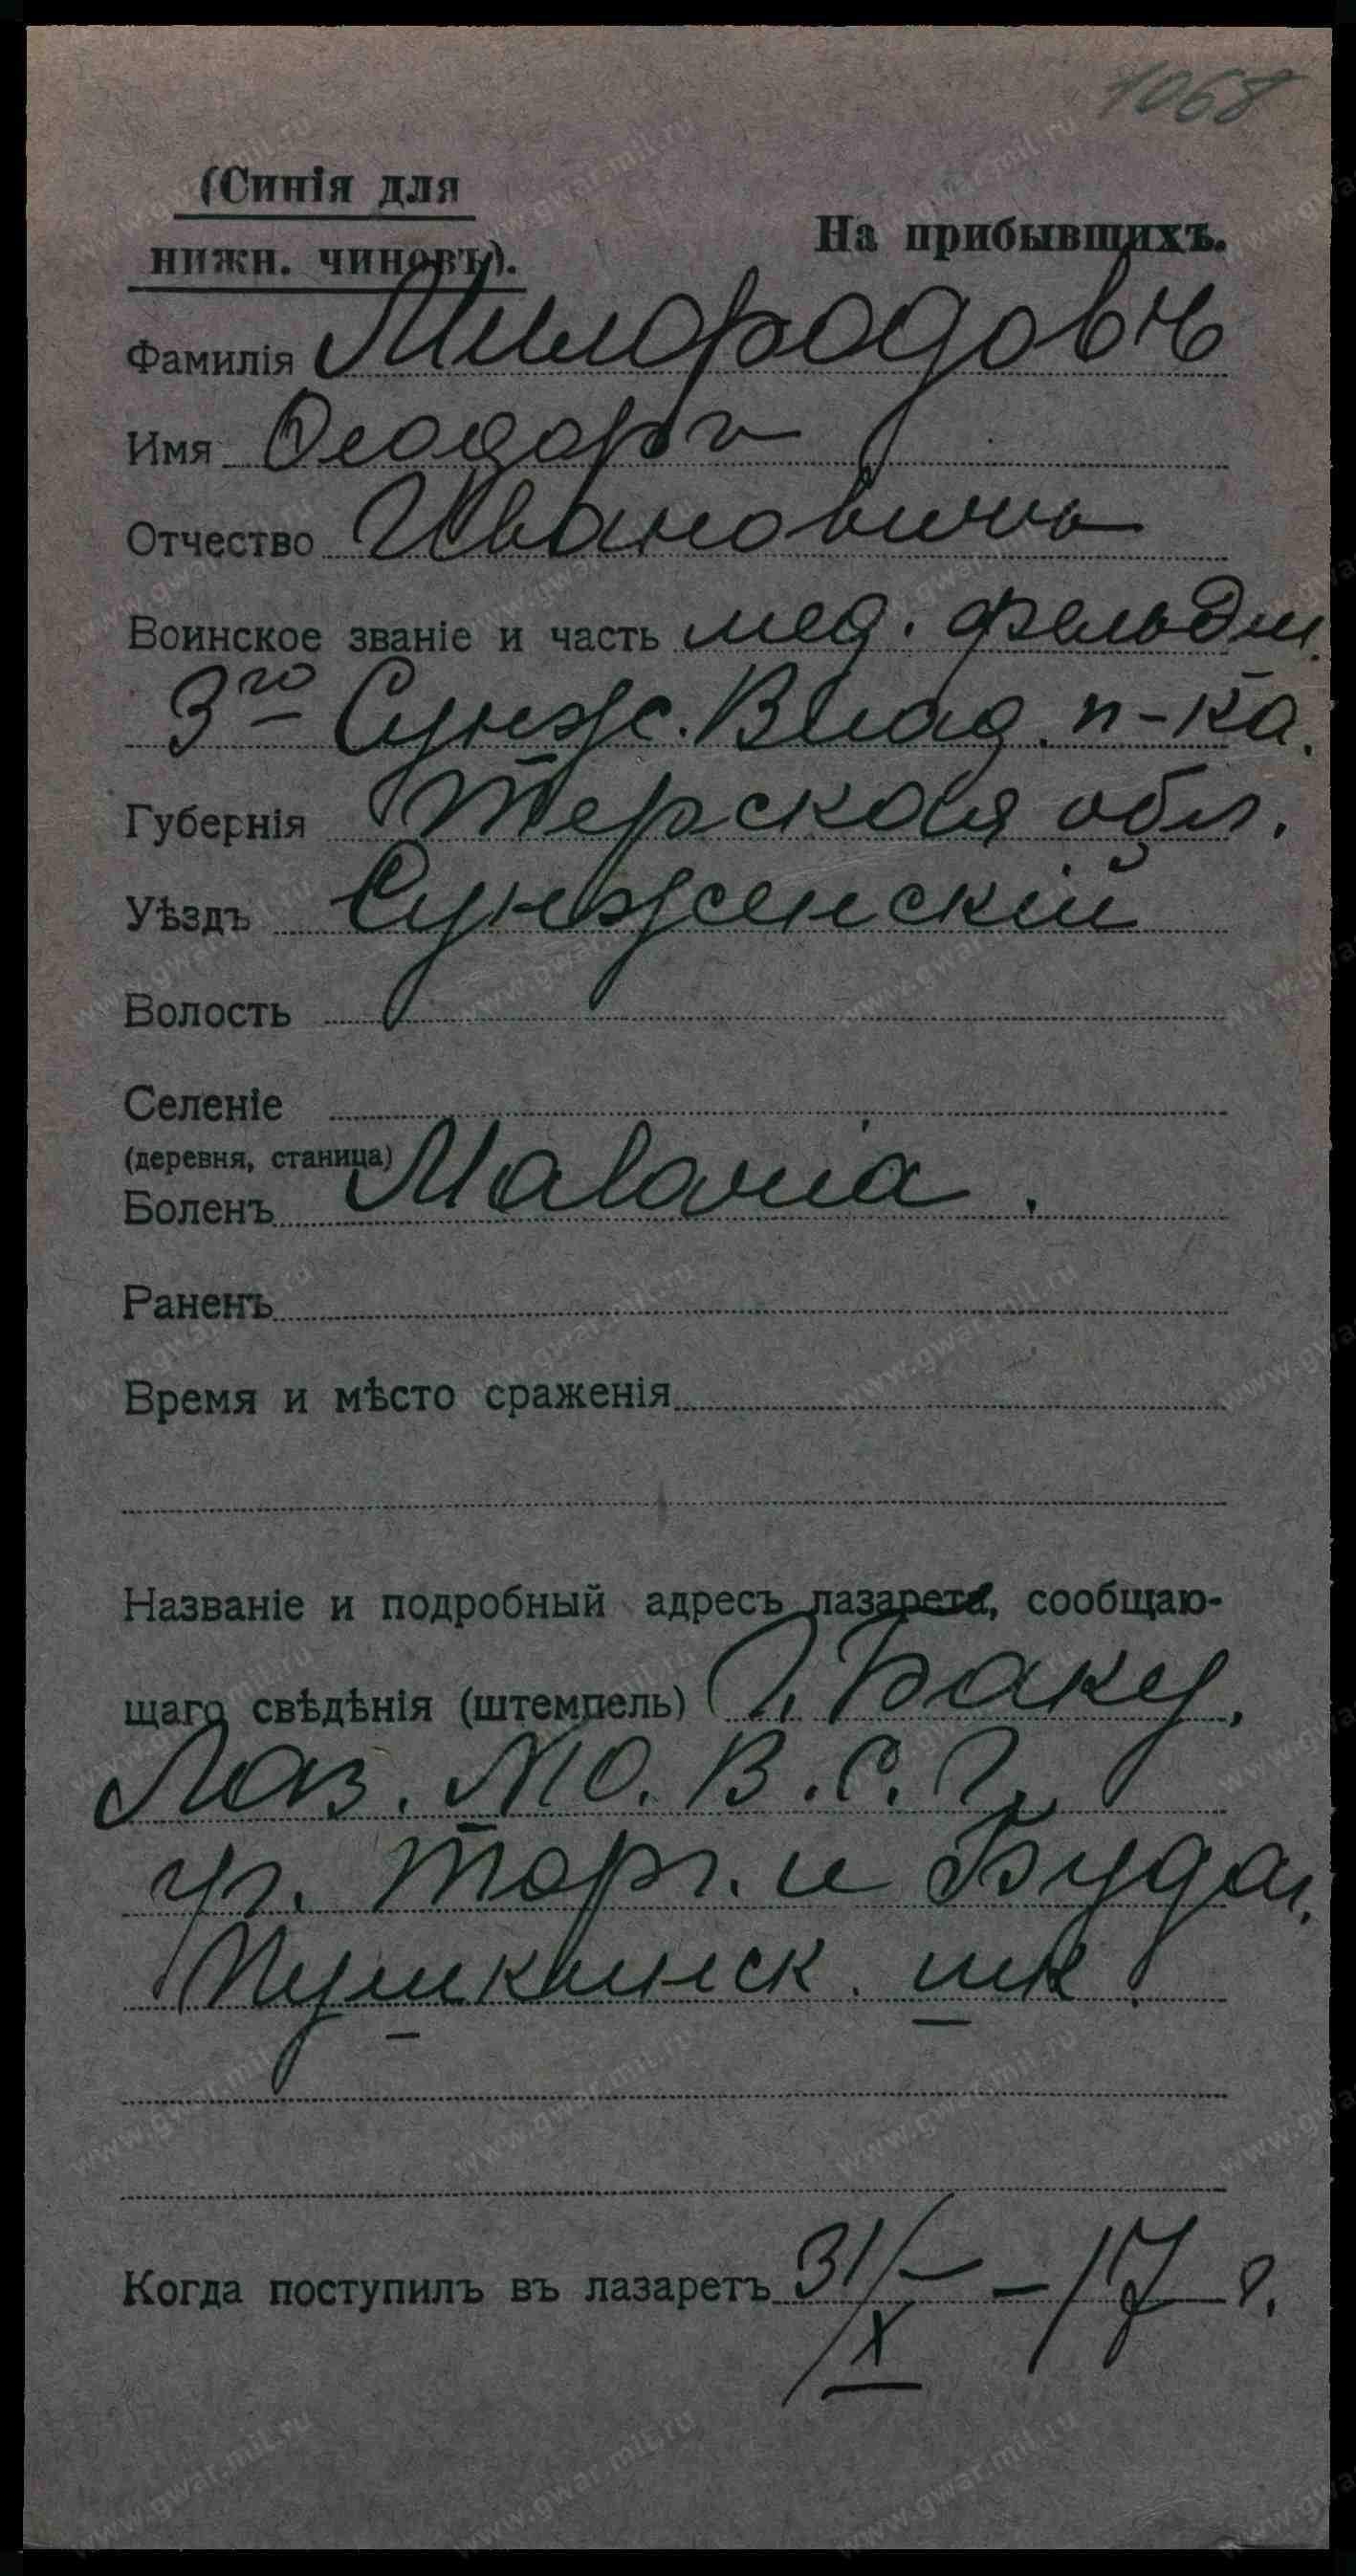 1068
(Синія для
нижн. чиновъ).
На прибывшихъ.
Фамилія Милородовъ
Имя Ѳеодоръ
Отчество Ивановичъ
Воинское званіе и часть мед. фельдш.
3го Сунж. Влад. п-ка.
Губернія Терская обл.
Уѣздъ Сунженскій
Волость
Селеніе
(деревня, станица)
Боленъ Malaria.
Раненъ
Время и мѣсто сраженія
Названіе и подробный адресъ лазарета, сообщаю-
щаго свѣдѣнія (штемпель) г. Баку,
Лаз. №10. В. С. Г.
уг. Торг. и Будаг.
Пушкинск. шк.
Когда поступилъ въ лазаретъ 31/X - 17 г.